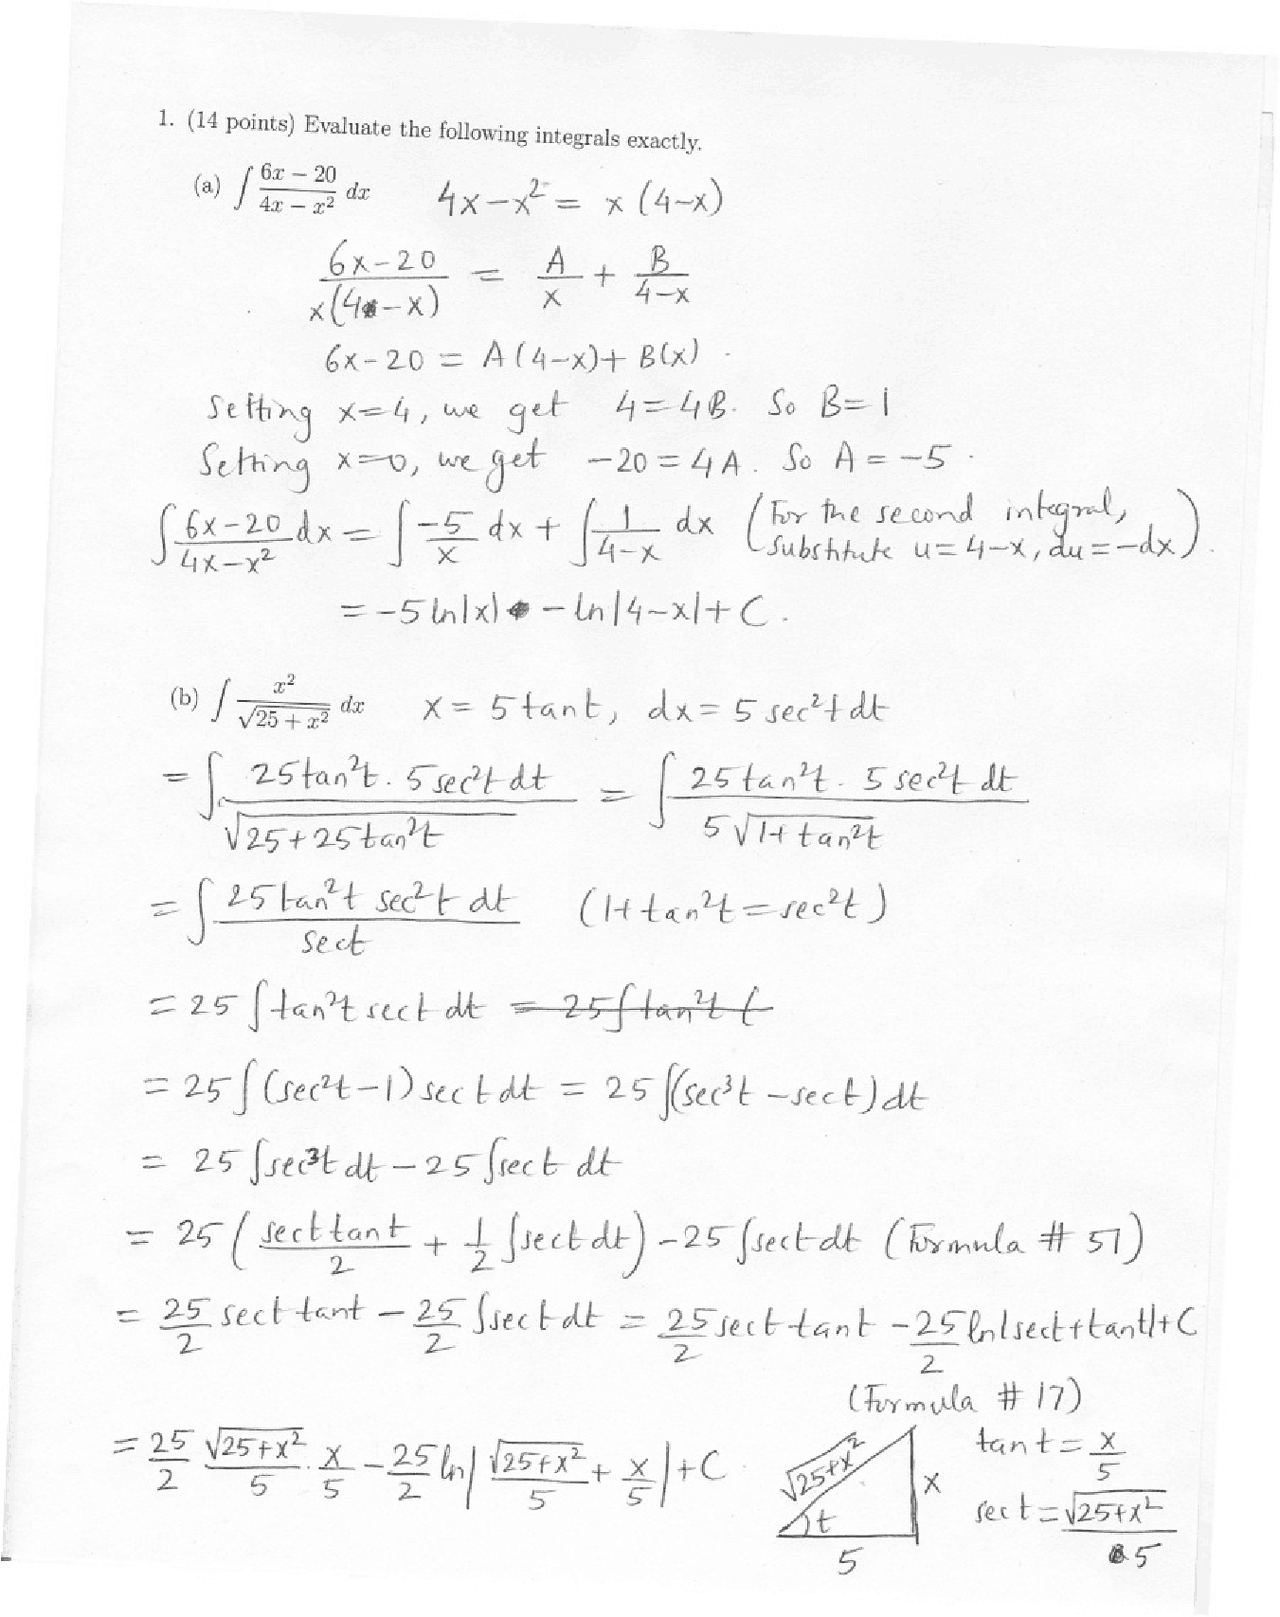 1. (14 points) Evaluate the following integrals exactly.
(a) ∫ (6x − 20)/(4x − x²) dx    4x−x² = x(4−x)
(6x−20)/(x(4−x)) = A/x + B/(4−x)
6x−20 = A(4−x)+B(x).
Setting x=4, we get 4=4B. So B=1
Setting x=0, we get −20=4A. So A=−5.
∫ (6x−20)/(4x−x²) dx = ∫ −5/x dx + ∫ 1/(4−x) dx (For the second integral, substitute u=4−x, du=−dx).
= −5 ln|x| − ln|4−x| + C.
(b) ∫ x²/√(25 + x²) dx    x = 5 tan t, dx = 5 sec²t dt
= ∫ (25 tan²t . 5 sec²t dt)/√(25+25 tan²t) = ∫ (25 tan²t . 5 sec²t dt)/(5√(1+tan²t))
= ∫ (25 tan²t sec²t dt)/(sec t)    (1+tan²t = sec²t)
= 25 ∫ tan²t sec t dt = 25 ∫ tan²t (
= 25 ∫ (sec²t−1) sec t dt = 25 ∫ (sec³t − sec t) dt
= 25 ∫ sec³t dt − 25 ∫ sec t dt
= 25 ( (sec t tan t)/2 + 1/2 ∫ sec t dt) − 25 ∫ sec t dt (Formula # 51)
= 25/2 sec t tan t − 25/2 ∫ sec t dt = 25/2 sec t tan t − 25/2 ln|sec t + tan t| + C
(Formula # 17)
= 25/2 √(25+x²)/5 . x/5 − 25/2 ln| √(25+x²)/5 + x/5 | + C
√(25+x²)
x
t
5
tan t = x/5
sec t = √(25+x²)/5